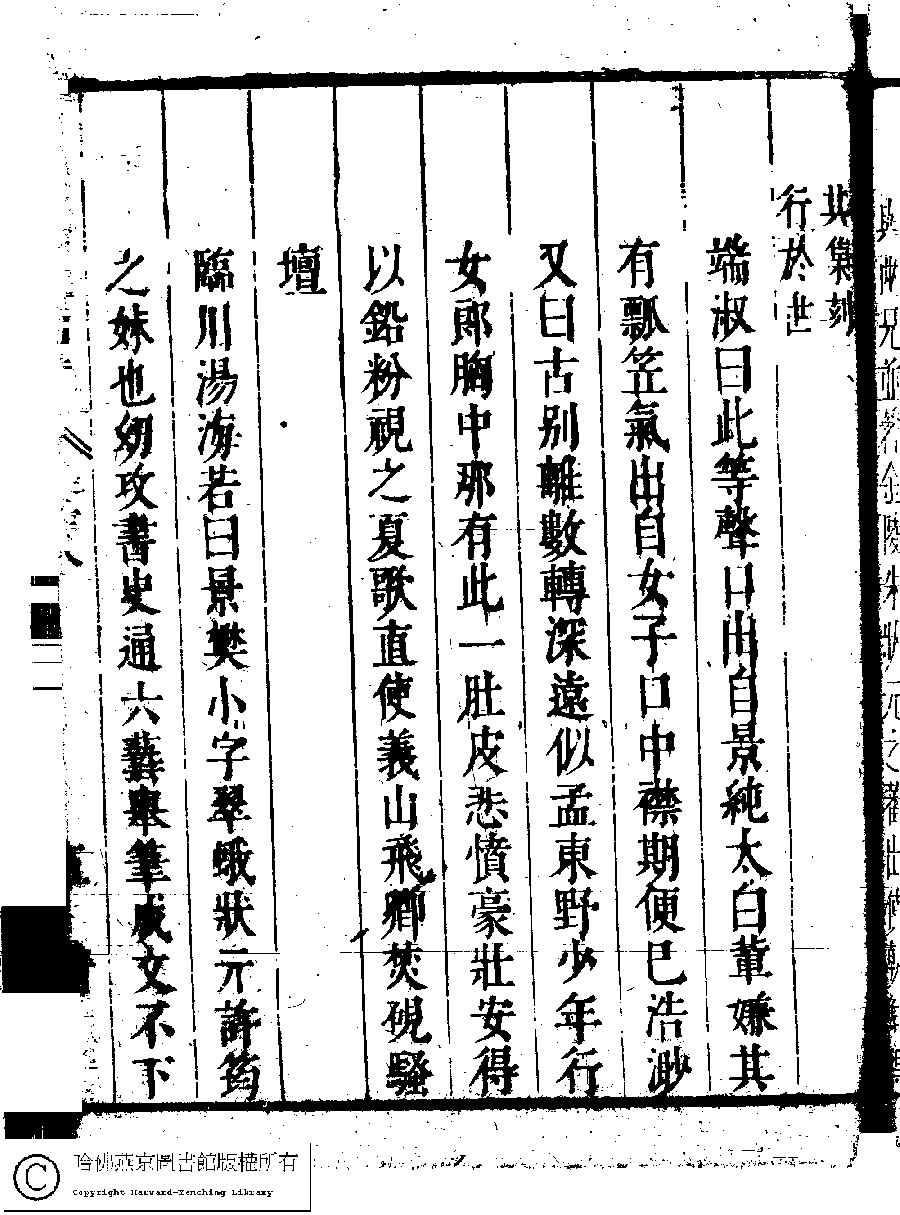 其集刻
行於世
端淑曰此等聲口出自景純太白輩嫌其
有瓢笠氣出自女子口中襟期便已浩渺
又曰古別離數轉深遠似孟東野少年行
女郎胸中那有此一肚皮悲憤豪壯安得
以鉛粉視之夏歌直使義山飛卿焚硯騷
壇
臨川湯海若曰景樊小字翠蛾狀元許筠
之妹也幼攻書史通六藝舉筆成文不下
哈佛燕京圖書館版權所有
Copyright Harvard-Yenching Library